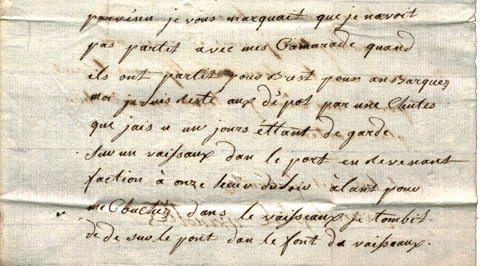 parvenu je vous marquait que je navoit
pas partit avec mes Camarade quand
ils ont partit pour Brest pour an Barquez
moi je suis resté aux dépot par une Chutes
que jais u un jours éttant de garde
sur un vaisseaux dan le port en devenant
faction à onze heur du soir àlant pour
me Couchez dans le vaisseaux je tombit
de de sur le pont dan le font da vaisseaux.